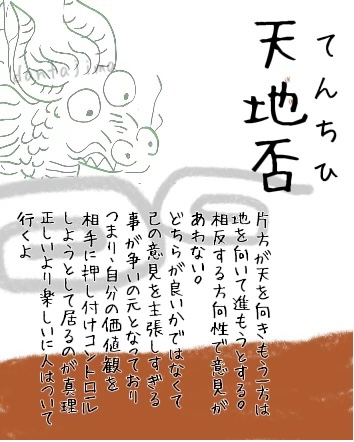 Hantajima
てんちひ
天地否
片方が天を向きもう一方は
地を向いて進もうとする。
相反する方向性で意見が
あわない。
どちらが良いかではなくて
己の意見を主張しすぎる
事が争いの元となっており
つまり、自分の価値観を
相手に押し付けコントロール
しようとして居るのが真理
正しいより楽しいに人はついて
行くよ